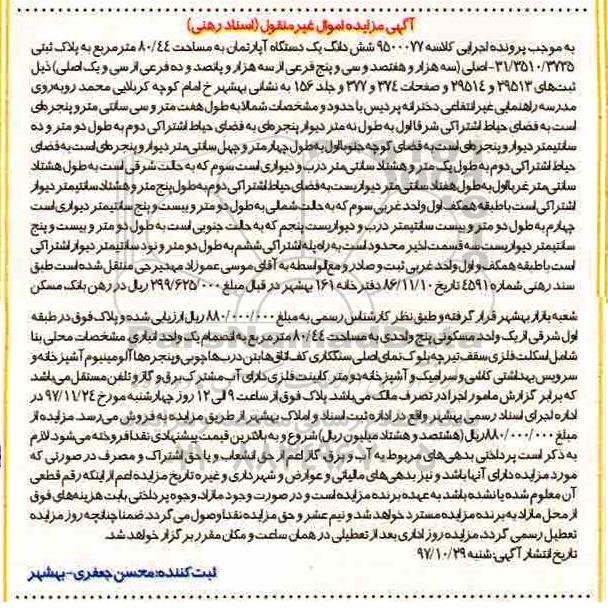 آگهی مزایده اموال غیر منقول (اسناد رهنی)
به موجب پرونده اجرایی کلاسه ۹۵۰۰۰۷۷ شش دانگ یک دستگاه آپارتمان به مساحت ۸۰/۴۴ مترمربع به پلاک ثبتی
۳۱/۳۵۱۰/۳۷۳۵- اصلی (سه هزار و هفتصد و سی و پنج فرعی از سه هزار و پانصد و ده فرعی از سی و یک اصلی) ذیل
ثبت‌های ۲۹۵۱۳ و ۲۹۵۱۴ و صفحات ۳۷۴ و ۳۷۷ و جلد ۱۵۶ به نشانی بهشهر خ امام کوچه کربلایی محمد روبه‌روی
مدرسه راهنمایی غیرانتفاعی دخترانه پردیس با حدود و مشخصات شمالا به طول هفت متر و سی سانتی متر و پنجره‌ای
است به فضای حیاط اشتراکی شرقا اول به طول نه متر دیوار پنجره‌ای به فضای حیاط اشتراکی دوم به طول دو متر و ده
سانتیمتر دیوار و پنجره‌ای است به فضای کوچه جنوبا اول به طول چهار متر و چهل سانتی متر دیوار و پنجره‌ای است به فضای
حیاط اشتراکی دوم به طول یک متر و هشتاد سانتی‌متر درب و دیواری است سوم که به حالت شرقی است به طول هشتاد
سانتی‌متر غربا اول به طول هفتاد سانتی متر دیواریست به فضای حیاط اشتراکی دوم به طول پنج متر و هشتاد سانتیمتر دیوار
اشتراکی است با طبقه همکف اول واحد غربی سوم که به حالت شمالی به طول دو متر و بیست و پنج سانتیمتر دیواری است
چهارم به طول دو متر و بیست سانتیمتر درب و دیواریست پنجم که به حالت جنوبی است به طول دو متر و بیست و پنج
سانتیمتر دیواریست سه قسمت اخیر محدود است به راه پله اشتراکی ششم به طول دو متر و نود سانتیمتر دیوار اشتراکی
است با طبقه همکف و اول واحد غربی ثبت و صادر و مع‌الواسطه به آقای موسی عموزاد مهدیرجی منتقل شده است طبق
سند رهنی شماره ۴۵۹۱ تاریخ ۸۶/۱۱/۱۰ دفترخانه ۱۶۱ بهشهر در قبال مبلغ ۲۹۹/۶۲۵/۰۰۰ ریال در رهن بانک مسکن
شعبه بازار بهشهر قرار گرفته و طبق نظر کارشناس رسمی به مبلغ ۸۸۰/۰۰۰/۰۰۰ ریال ارزیابی شده و پلاک فوق در طبقه
اول شرقی از یک واحد مسکونی پنج واحدی به مساحت ۸۰/۴۴ متر مربع به انضمام یک واحد انباری. مشخصات محلی بنا
شامل اسکلت فلزی، سقف تیرچه بلوک نمای اصلی سنگکاری کف اتاق‌ها بتن درب‌ها چوبی و پنجره‌ها آلومینیوم آشپزخانه و
سرویس بهداشتی کاشی و سرامیک و آشپزخانه دو متر کابینت فلزی دارای آب مشترک برق و گاز و تلفن مستقل می‌باشد
که برابر گزارش مامور اجرا در تصرف مالک می‌باشد. پلاک فوق از ساعت ۹ الی ۱۲ روز چهارشنبه مورخ ۹۷/۱۱/۲۴ در
اداره اجرای اسناد رسمی بهشهر واقع در اداره ثبت اسناد و املاک بهشهر از طریق مزایده به فروش می‌رسد. مزایده از
مبلغ ۸۸۰/۰۰۰/۰۰۰ ریال (هشتصد و هشتاد میلیون ریال) شروع و به بالاترین قیمت پیشنهادی نقدا فروخته می‌شود. لازم
به ذکر است پرداختی بدهی‌های مربوط به آب و برق، گاز اعم از حق انشعاب و یا حق اشتراک و مصرف در صورتی که
مورد مزایده دارای آنها باشد و نیز بدهی‌های مالیاتی و عوارض و شهرداری و غیره تا تاریخ مزایده اعم از اینکه رقم قطعی
آن معلوم شده یا نشده باشد به عهده برنده مزایده است و در صورت وجود مازاد، وجوه پرداختی بابت هزینه‌های فوق
از محل مازاد به برنده مزایده مسترد خواهد شد و نیم عشر و حق مزایده نقدا وصول می گردد. ضمنا چنانچه روز مزایده
تعطیل رسمی گردد، مزایده روز اداری بعد از تعطیلی در همان ساعت و مکان مقرر برگزار خواهد شد.
تاریخ انتشار آگهی: شنبه ۹۷/۱۰/۲۹
ثبت کننده: محسن جعفری - بهشهر